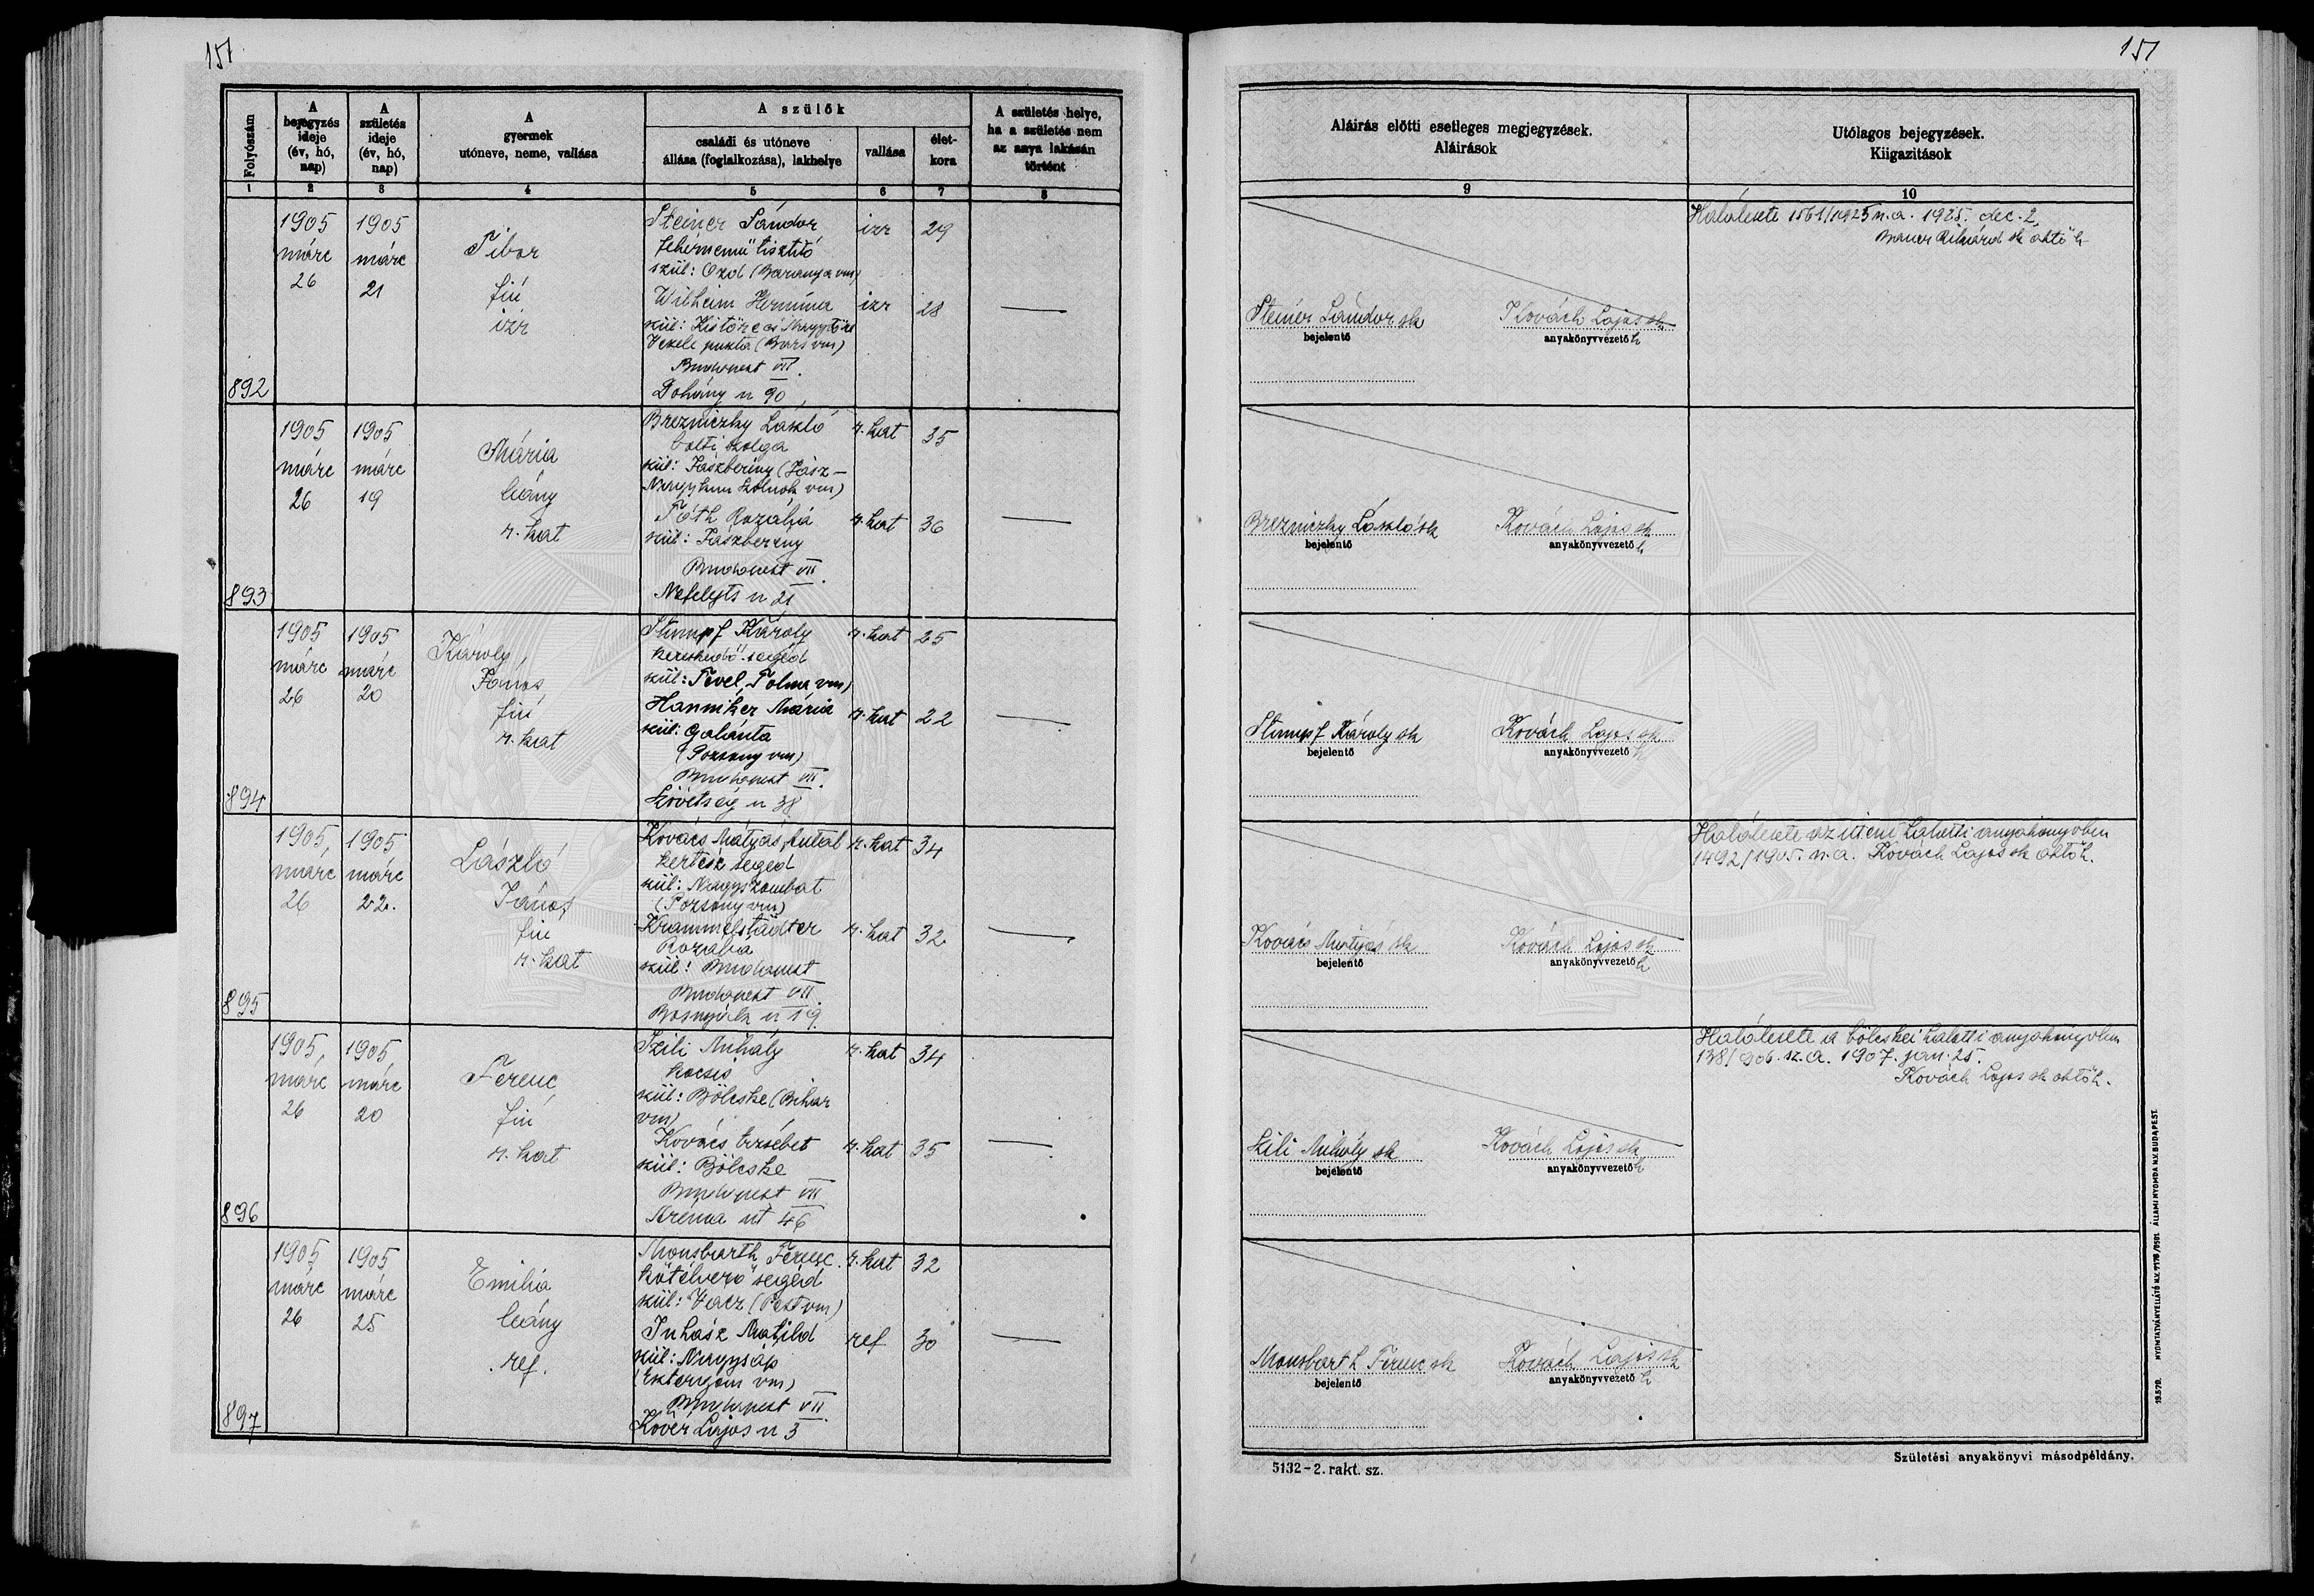 151
A szülők
Folyószám
A bejegyzés ideje (év, hó, nap)
A születés ideje (év, hó, nap)
A gyermek utóneve, neme, vallása
családi és utóneve állása (foglalkozása), lakhelye
vallása
életkora
A születés helye, ha a születés nem az anya lakásán történt
1 2 3 4 5 6 7 8
892
1905 márc 26
1905 márc 21
Tibor
fiú
izr
Steiner Sándor izr 29
fehérnemű tisztító
szül: Ozd (Baranya vm)
Wilheim Hermina izr 28
szül: Kistőre és Nagytőre
Vekele puszta (Bars vm)
Budapest VII.
Dohány u 90
893
1905 márc 26
1905 márc 19
Mária
leány
r. kat
Brezniczky László r. kat 35
bolti szolga
szül: Jászberény (Jász-
Nagykun Szolnok vm)
Tóth Rozália r. kat 36
szül: Jászberény
Budapest VII.
Nefelejts u 21
894
1905 márc 26
1905 márc 20
Károly
János
fiú
r. kat
Stumpf Károly r. kat 25
kereskedő segéd
szül: Tevel, Tolna vm)
Hanniker Mária r. kat 22
szül: Galánta
(Pozsony vm)
Budapest VII.
Szövetség u 38
895
1905, márc 26
1905 márc 22.
László
János
fiú
r. kat
Kovács Mátyás Antal r. kat 34
kertész segéd
szül: Nagyszombat
(Pozsony vm)
Krammelstädter r. kat 32
Rozália
szül: Budapest
Budapest VII.
Bosnyák u 19
896
1905, márc 26
1905, márc 20
Ferenc
fiú
r. kat
Szili Mihály r. kat 34
kocsis
szül: Bölcske (Bihar
vm)
Kovács Erzsébet r. kat 35
szül: Bölcske
Budapest VII
Aréna út 46
897
1905 márc 26
1905 márc 25
Emilia
leány
ref.
Monsbarth Ferenc r. kat 32
kötélverő segéd
szül: Vácz (Pest vm)
Juhász Matild ref 30
szül: Nagysáp
(Esztergom vm)
Budapest VII.
Kövér Lajos u 3
151
Aláirás előtti esetleges megjegyzések.
Aláirások
Utólagos bejegyzések.
Kiigazitások
9 10
Halálesete 1561/1925 n.a. 1925. dec. 2.
Bauer Rikárd sk aktő h
Steiner Sándor sk Kovách Lajos sk
bejelentő anyakönyvvezető h
Brezniczky László sk Kovách Lajos sk
bejelentő anyakönyvvezető h
Stumpf Károly sk Kovách Lajos sk
bejelentő anyakönyvvezető h
Halálesete az itteni halotti anyakönyvben
1492/1905. n.a. Kovách Lajos sk aktőh.
Kovács Mátyás sk Kovách Lajos sk
bejelentő anyakönyvvezető h
Halálesete a bölcskei halotti anyakönyvben
138/906. sz.a. 1907. jan. 25.
Kovách Lajos sk aktőh.
Szili Mihály sk Kovách Lajos sk
bejelentő anyakönyvvezető h
Monsbarth Ferenc sk Kovách Lajos sk
bejelentő anyakönyvvezető h
5132-2. rakt. sz.
Születési anyakönyvi másodpéldány.